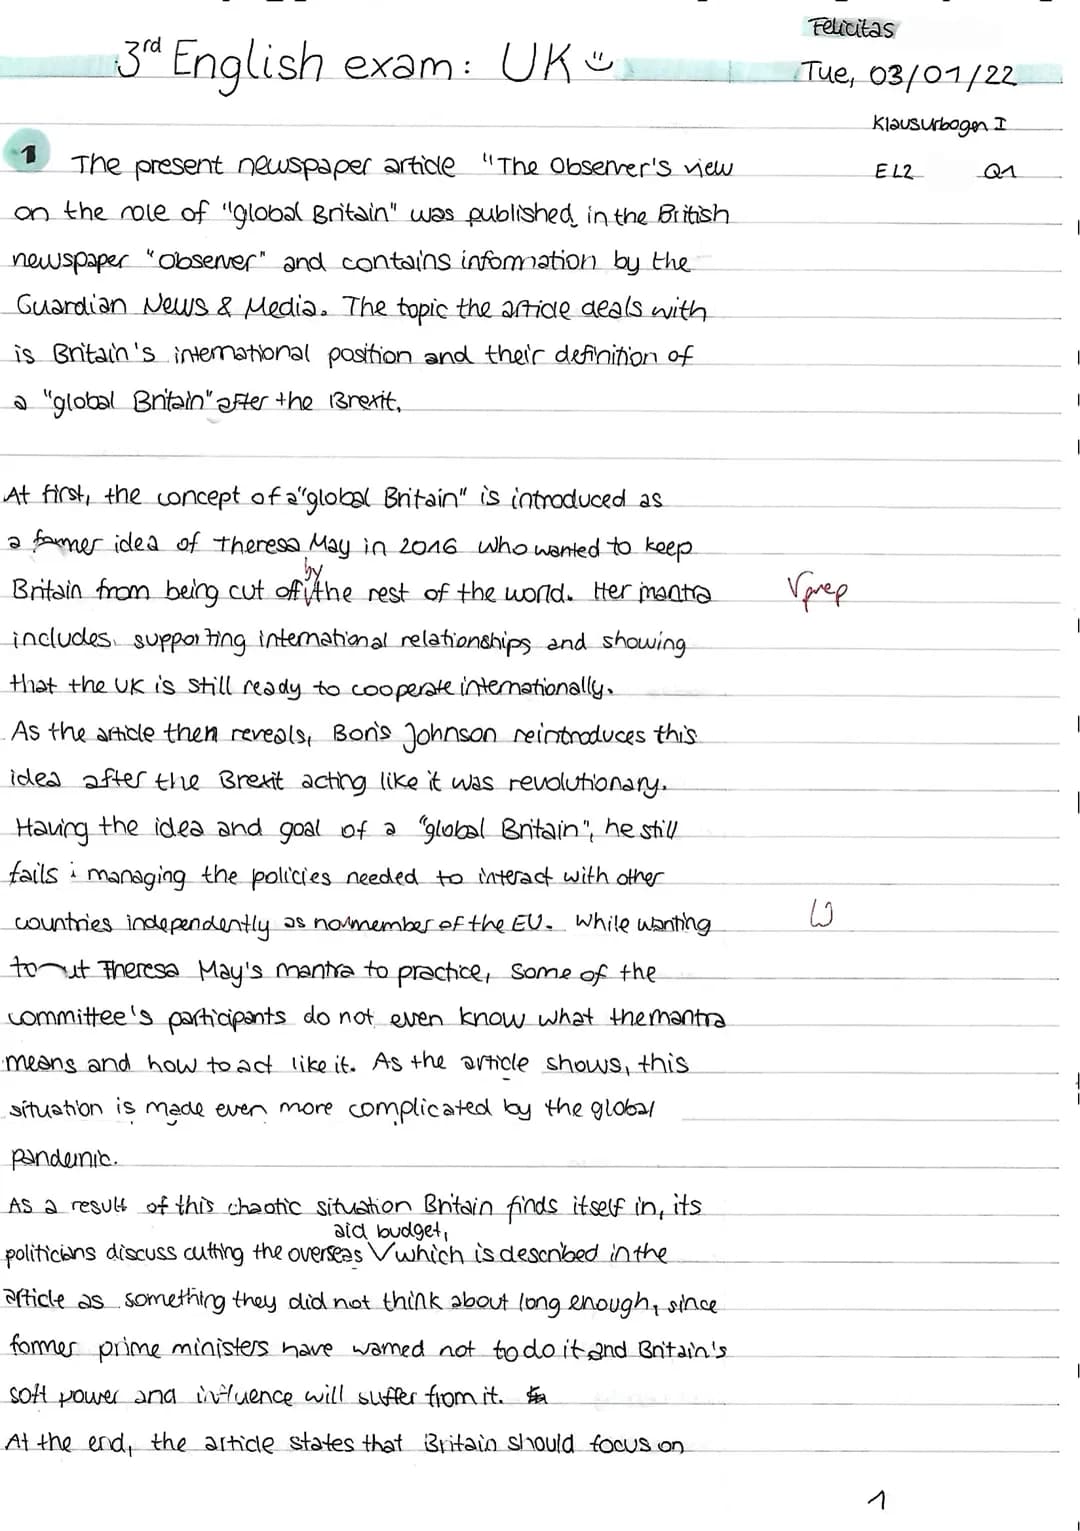 Felicitas
3rd English exam: UK
Tue, 03/01/22
Klausurbogen I
EL2 Q1
1 The present newspaper article "The Observer's view
on the role of "global Britain" was published in the British
newspaper "Observer" and contains information by the
Guardian News & Media. The topic the article deals with
is Britain's international position and their definition of
a "global Britain" after the Brexit.
At first, the concept of a "global Britain" is introduced as
a former idea of Theresa May in 2016 who wanted to keep
by
Britain from being cut off the rest of the world. Her mantra
Vprep
includes supporting international relationships and showing
that the UK is still ready to cooperate internationally.
As the article then reveals, Boris Johnson reintroduces this
idea after the Brexit acting like it was revolutionary.
Having the idea and goal of a "global Britain", he still
fails i managing the policies needed to interact with other
countries independently as no member of the EU. While wanting
to ut Theresa May's mantra to practice, some of the
committee's participants do not even know what the mantra
means and how to act like it. As the article shows, this
situation is made even more complicated by the global
pandemic.
As a result of this chaotic situation Britain finds itself in, its
aid budget,
politicians discuss cutting the overseas V which is described in the
article as something they did not think about long enough, since
former prime ministers have warned not to do it and Britain's
soft power and influence will suffer from it.
At the end, the article states that Britain should focus on
1